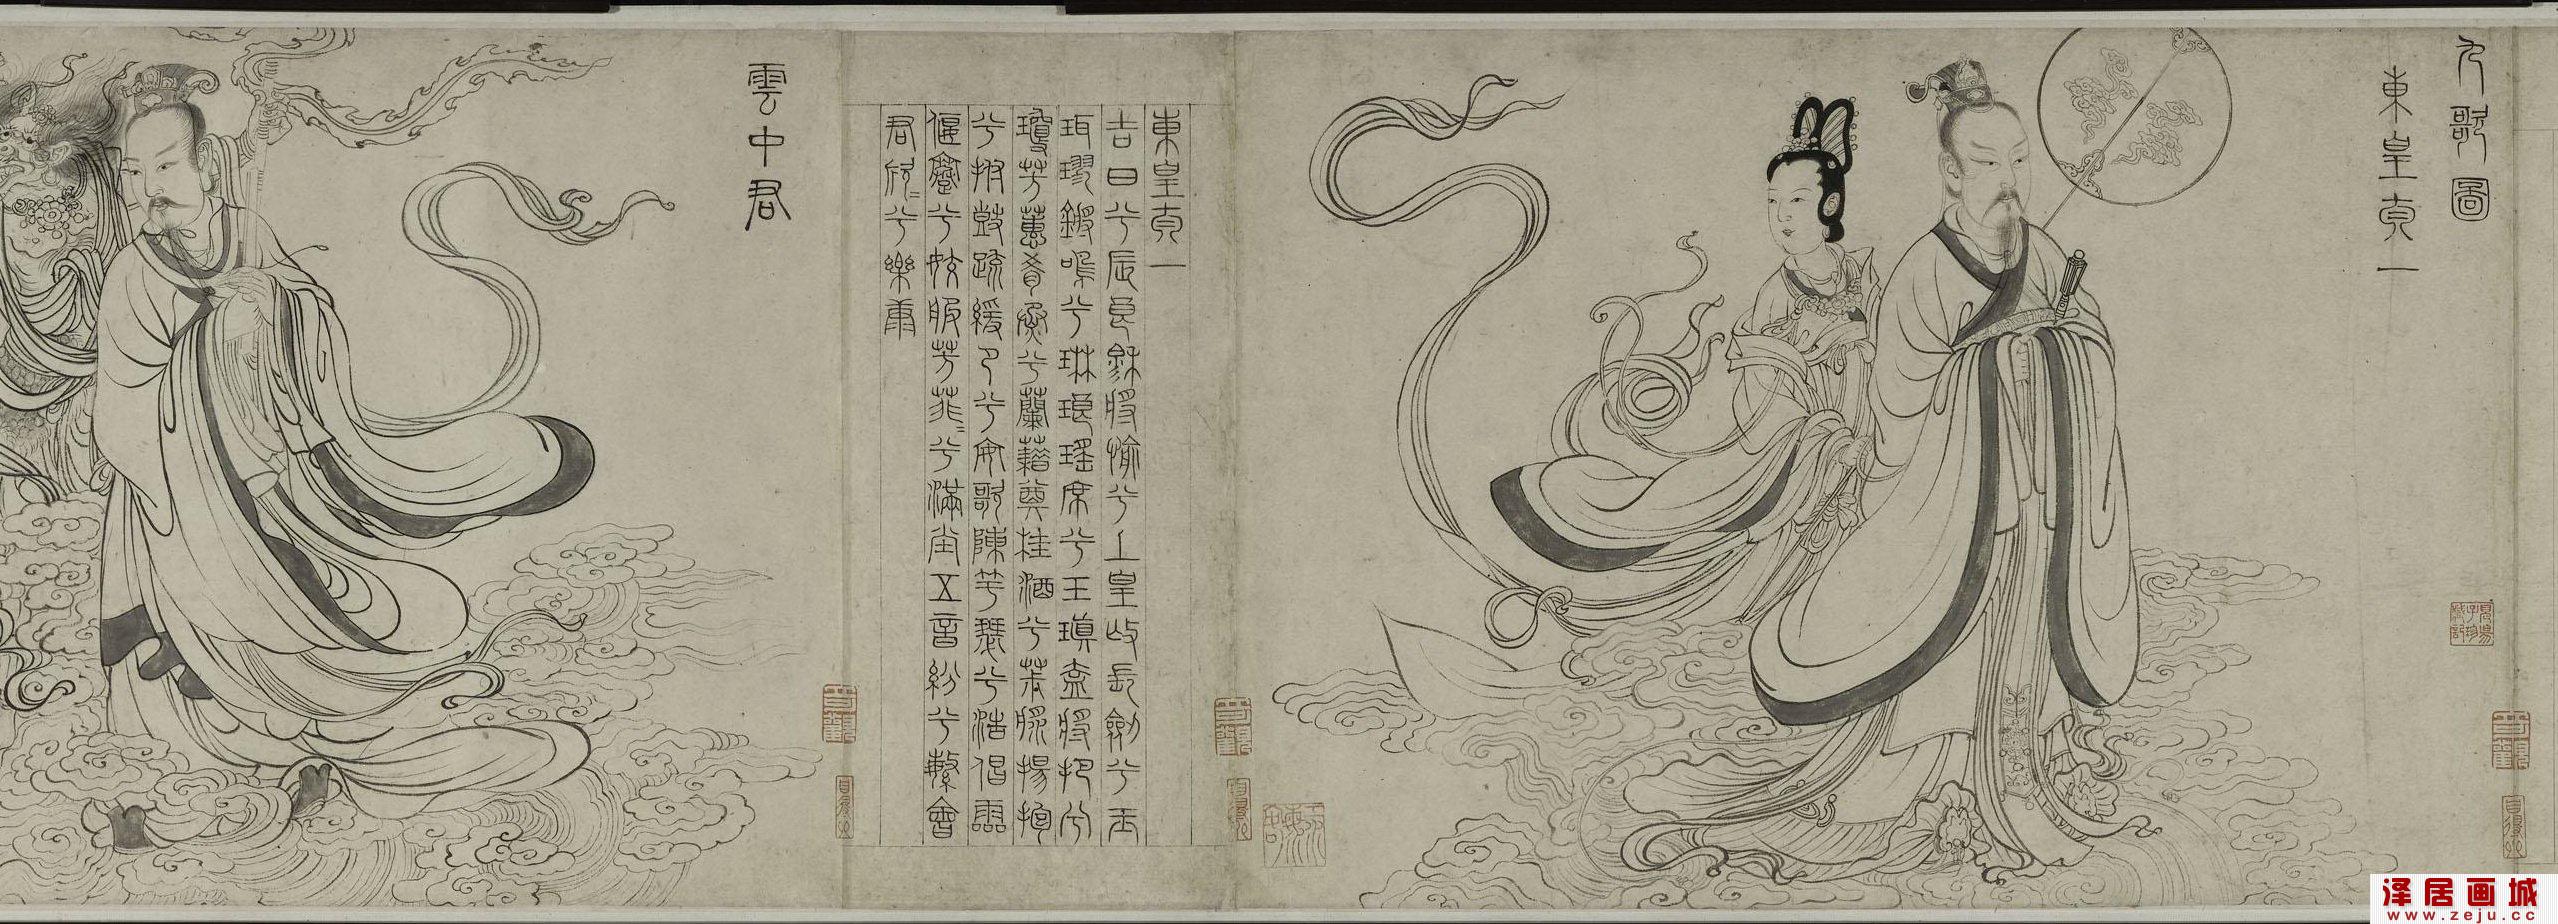 九歌圖
東皇太一
東皇太一
吉日兮辰良穆將愉兮上皇撫長劍兮玉
珥璆鏘鳴兮琳琅瑤席兮玉瑱盍將把兮
瓊芳蕙肴烝兮蘭藉奠桂酒兮椒漿揚枹
兮拊鼓疏緩節兮安歌陳竽瑟兮浩倡靈
偃蹇兮姣服芳菲=兮滿堂五音紛兮繁會
君欣=兮樂康
雲中君
泽居画城
www.zeju.cc